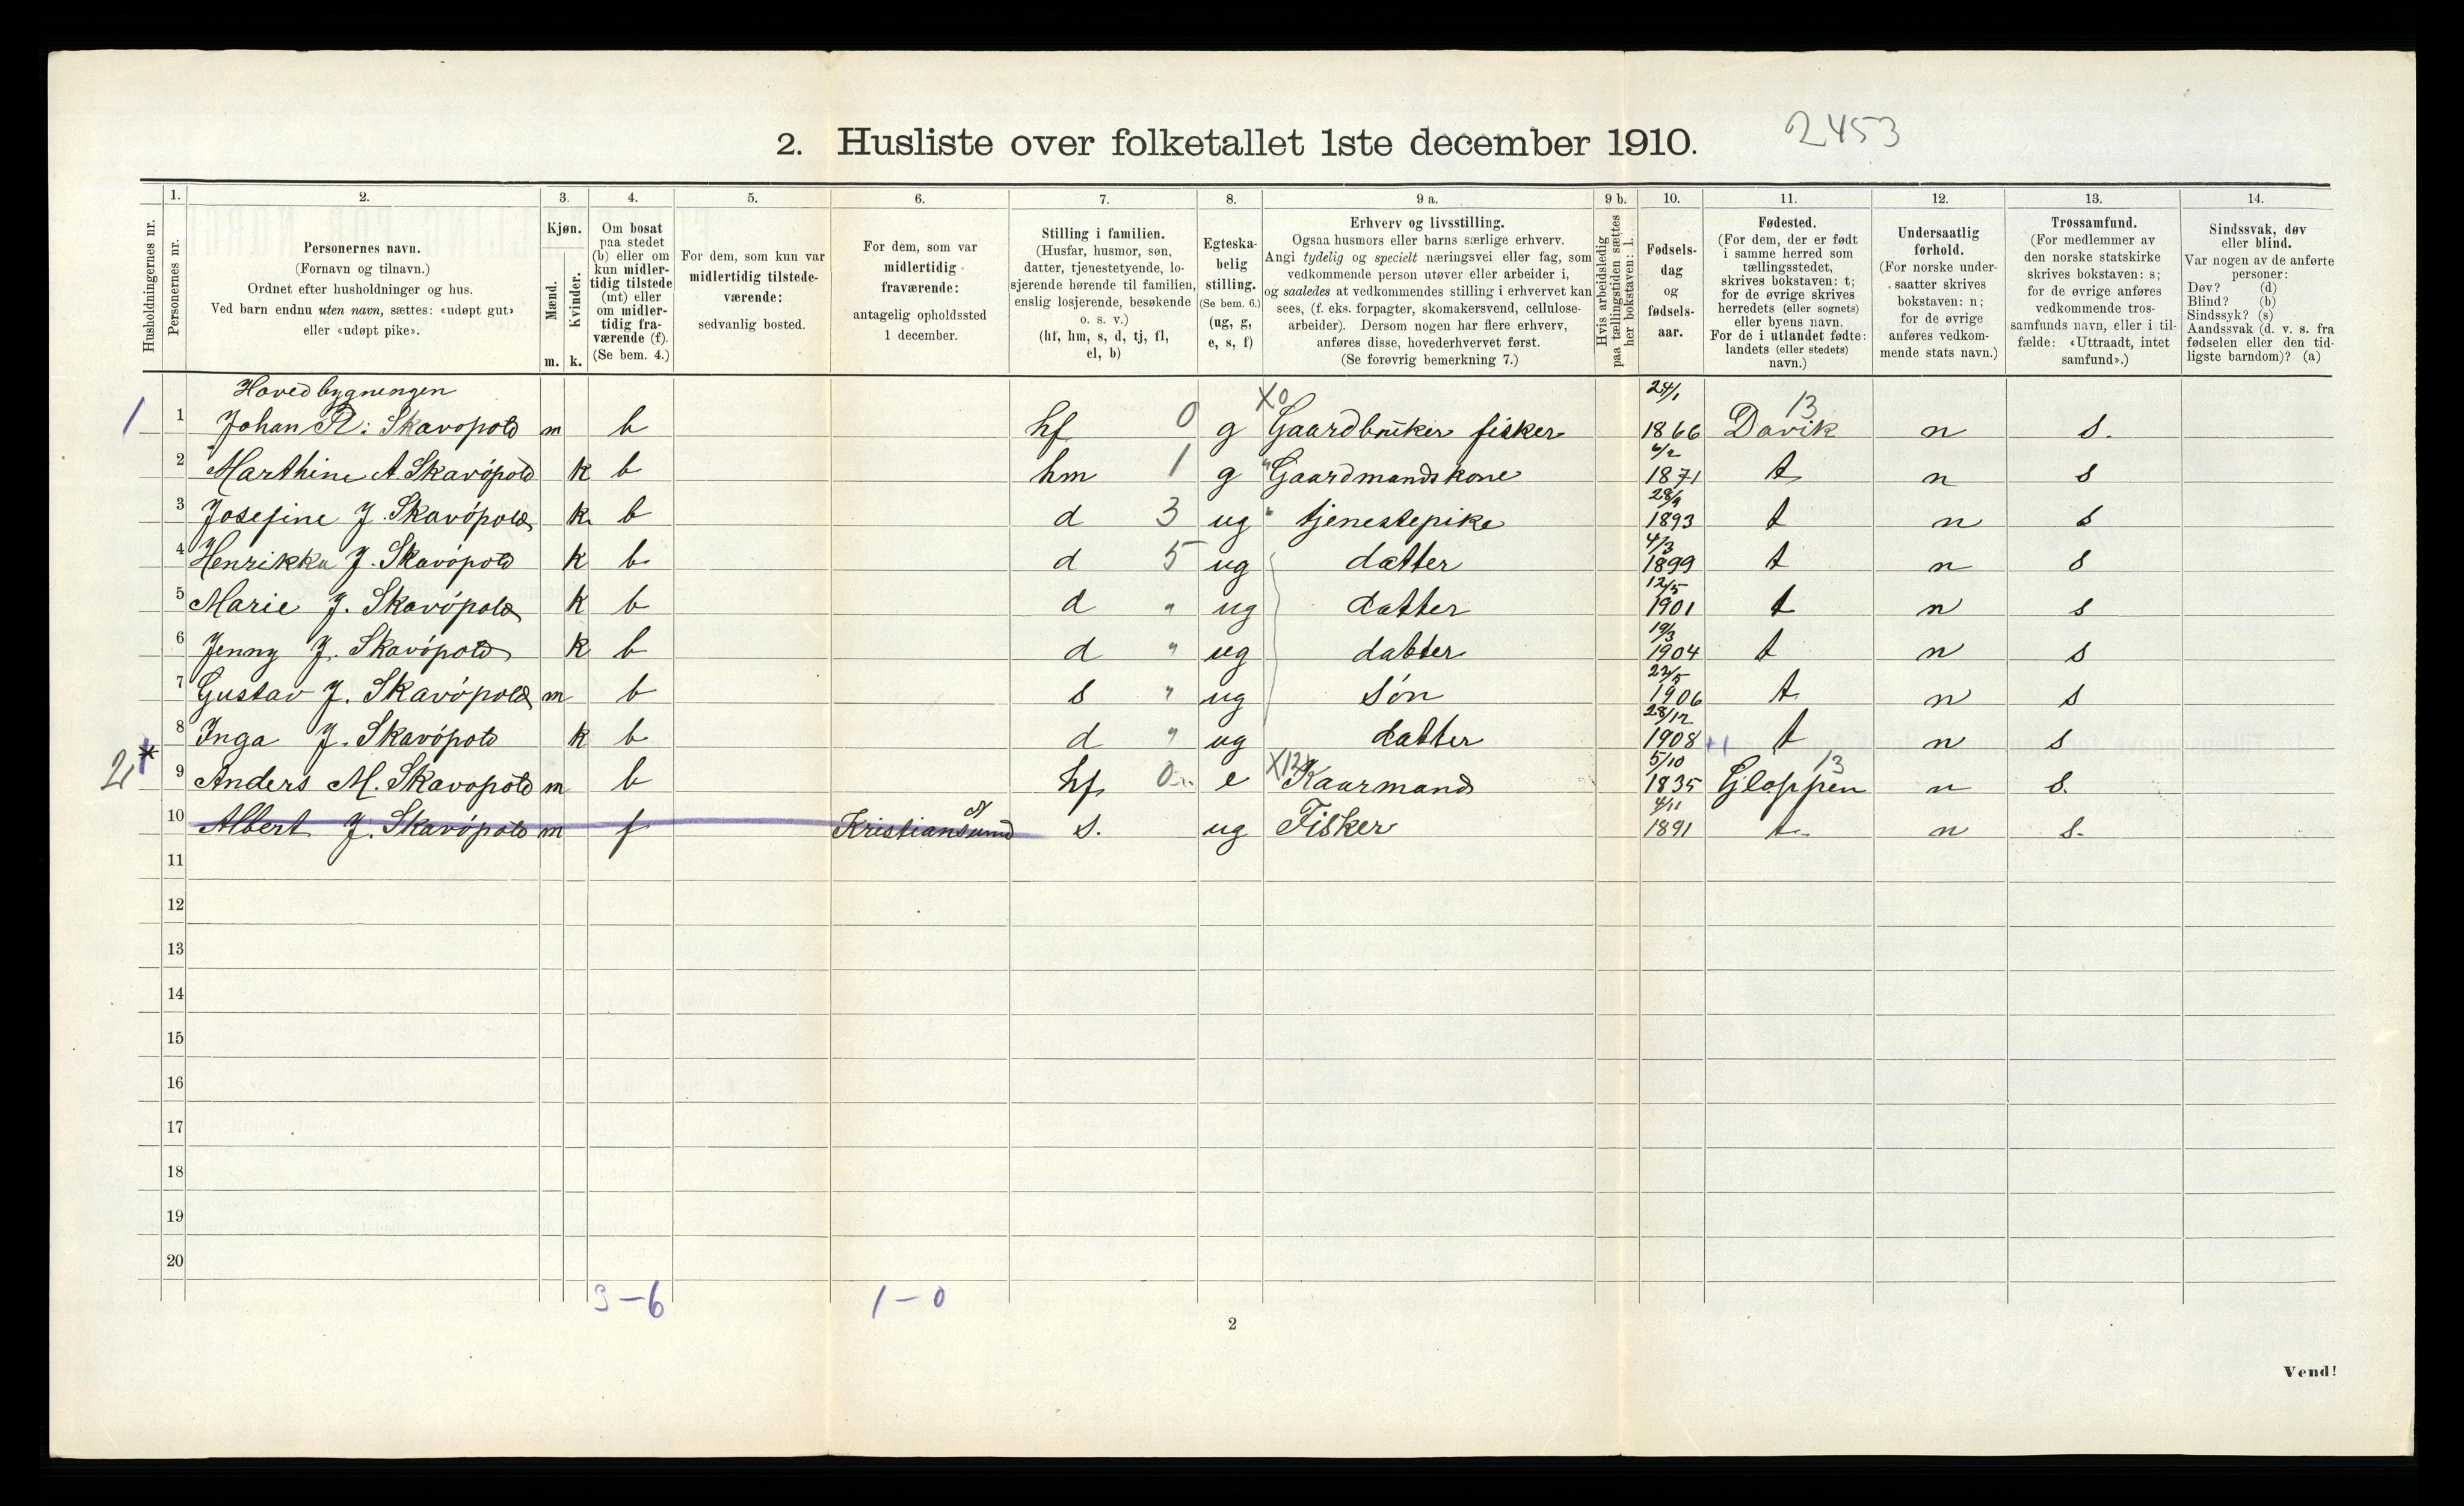 2. Husliste over folketallet 1ste december 1910. 2453
Husholdningernes nr.
1.
Personernes nr.
2.
Personernes navn.
(Fornavn og tilnavn.)
Ordnet efter husholdninger og hus.
Ved barn endnu uten navn, sættes: «udøpt gut»
eller «udøpt pike».
3.
Kjøn.
Mænd.
m.
Kvinder.
k.
4.
Om bosat
paa stedet
(b) eller om
kun midler-
tidig tilstede
(mt) eller
om midler-
tidig fra-
værende (f).
(Se bem. 4.)
5.
For dem, som kun var
midlertidig tilstede-
værende:
sedvanlig bosted.
6.
For dem, som var
midlertidig
fraværende:
antagelig opholdssted
1 december.
7.
Stilling i familien.
(Husfar, husmor, søn,
datter, tjenestetyende, lo-
sjerende hørende til familien,
enslig losjerende, besøkende
o. s. v.)
(hf, hm, s, d, tj, fl,
el, b)
8.
Egteska-
belig
stilling.
(Se bem. 6.)
(ug, g,
e, s, f)
9 a.
Erhverv og livsstilling.
Ogsaa husmors eller barns særlige erhverv.
Angi tydelig og specielt næringsvei eller fag, som
vedkommende person utøver eller arbeider i,
og saaledes at vedkommendes stilling i erhvervet kan
sees, (f. eks. forpagter, skomakersvend, cellulose-
arbeider). Dersom nogen har flere erhverv,
anføres disse, hovederhvervet først.
(Se forøvrig bemerkning 7.)
9 b.
Hvis arbeidsledig
paa tællingstiden sættes
her bokstaven: l.
10.
Fødsels-
dag
og
fødsels-
aar.
11.
Fødested.
(For dem, der er født
i samme herred som
tællingsstedet,
skrives bokstaven: t;
for de øvrige skrives
herredets (eller sognets)
eller byens navn.
For de i utlandet fødte:
landets (eller stedets)
navn.)
12.
Undersaatlig
forhold.
(For norske under-
saatter skrives
bokstaven: n;
for de øvrige
anføres vedkom-
mende stats navn.)
13.
Trossamfund.
(For medlemmer av
den norske statskirke
skrives bokstaven: s;
for de øvrige anføres
vedkommende tros-
samfunds navn, eller i til-
fælde: «Uttraadt, intet
samfund».)
14.
Sindssvak, døv
eller blind.
Var nogen av de anførte
personer:
Døv? (d)
Blind? (b)
Sindssyk? (s)
Aandssvak (d. v. s. fra
fødselen eller den tid-
ligste barndom)? (a)
Hovedbygningen
1 1 Johan R: Skavøpold m b hf 0 g X0 Gaardbruker fisker 24/1 1866 Davik 13 n s.
2 Marthine A. Skavøpold k b hm 1 g " Gaardmandskone 6/2 1871 t n s
3 Josefine J. Skavøpold k. b d 3 ug " tjenestepike 28/9 1893 t n s
4 Henrikka J. Skavøpold k b d 5 ug datter 4/3 1899 t n s
5 Marie J. Skavøpold k b d " ug datter 12/5 1901 t n s
6 Jenny J. Skavøpold k b d " ug datter 19/3 1904 t n s
7 Gustav J. Skavøpold m b s " ug søn 22/5 1906 t n s
8 Inga J. Skavøpold k b d " ug datter 28/12 1908 t n s
2 * 9 Anders M. Skavøpold m b hf 0 e X12 Kaarmand 5/10 1835 Gloppen 13 n s.
10 Albert J. Skavøpold m f Kristiansund N s. ug Fisker 4/11 1891 t n s.
11
12
13
14
15
16
17
18
19
20
3-6 1-0
2
Vend!